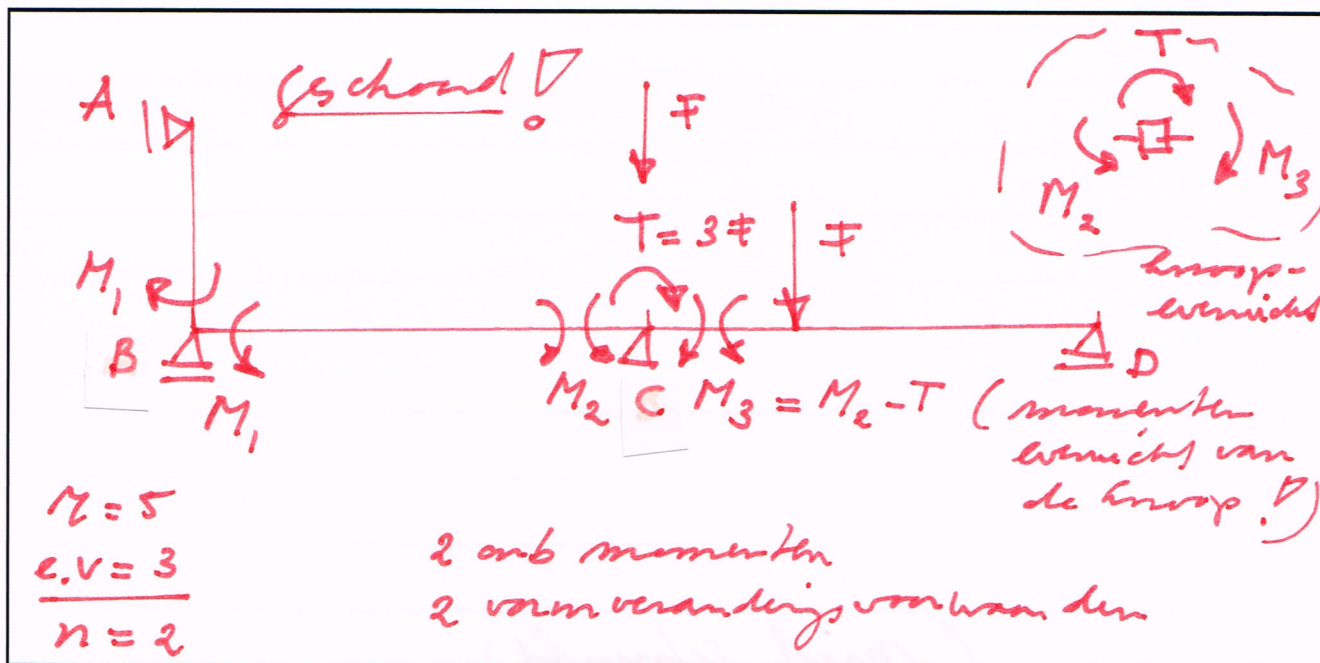 geschoord!
A
F
T
M₂
M₃
knoop-
evenwicht
T = 3F
F
M₁
B
M₁
M₂ C M₃ = M₂ - T (momenten
evenwicht van
de knoop!)
D
r = 5
e.v = 3
n = 2
2 onb momenten
2 vormveranderingsvoorwaarden